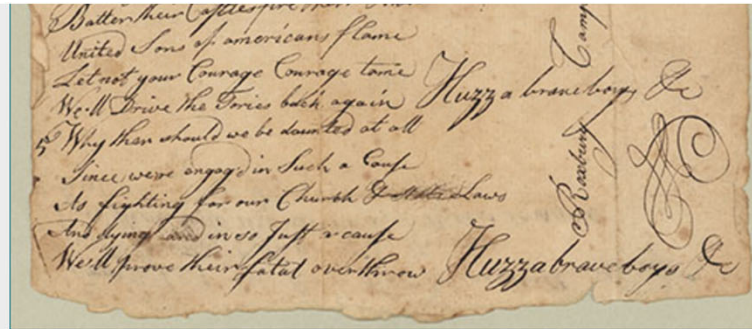 Batter their Castles fire their
United Sons of americans flame
Let not your Courage Courage tame
We.ll Drive the Tories back again Huzza brave boys &c
5 Why then should we be daunted at all
Since we.re engag'd in Such a Cause
As fighting for our Church & Laws
And dying in so Just a cause
We.ll prove their fatal overthrow Huzza brave boys &c
Roxbury Camp